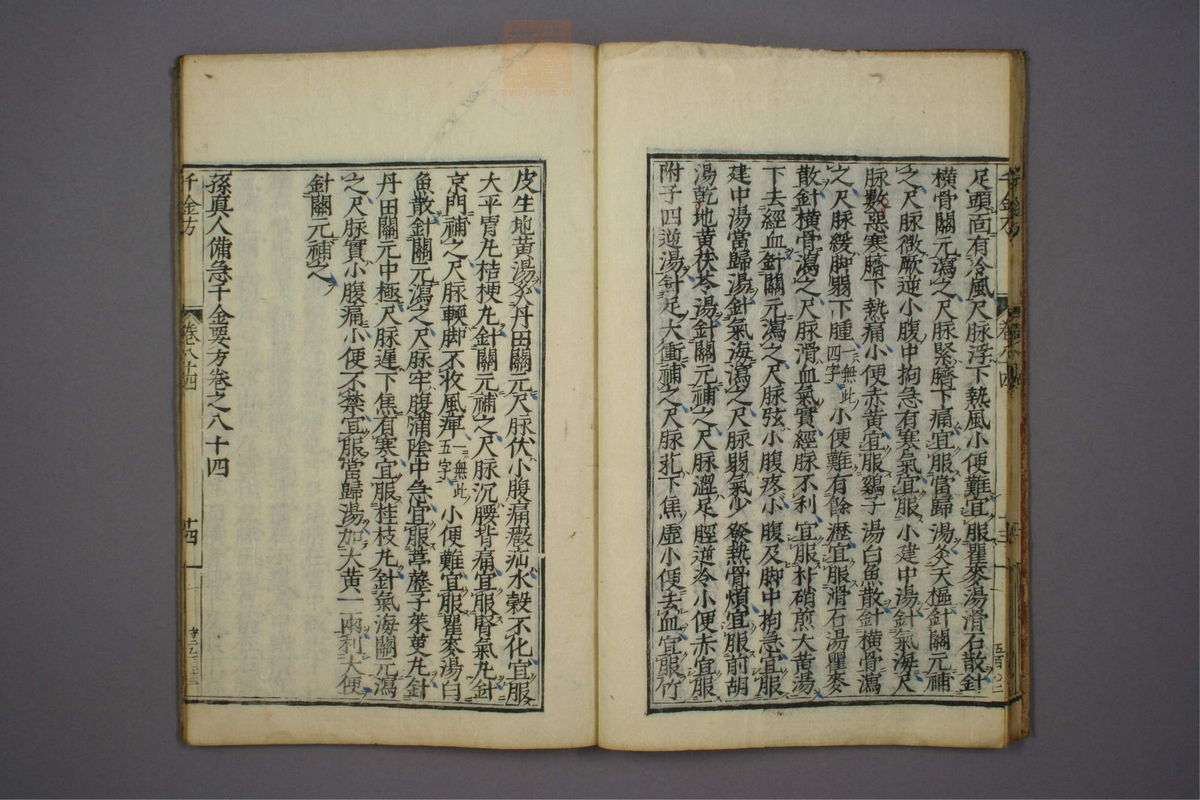 足頭面有冷風尺脉浮下熱風小便難宜服瞿麥湯滑石散針
橫骨關元瀉之尺脉緊臍下痛宜服當歸湯灸天樞針關元補
之尺脉微厥逆小腹中拘急有寒氣宜服小建中湯針氣海尺
脉數惡寒臍下熱痛小便赤黃宜服雞子湯白魚散針橫骨瀉
之尺脉緩脚弱下腫一無此四字小便難有餘瀝宜服滑石湯瞿麥
散針橫骨瀉之尺脉滑血氣實經脉不利宜服朴硝煎大黃湯
下去經血針關元瀉之尺脉弦小腹疼小腹及脚中拘急宜服
建中湯當歸湯針氣海瀉之尺脉弱氣少發熱骨煩宜服前胡
湯乾地黃茯苓湯針關元補之尺脉澀足脛逆冷小便赤宜服
附子四逆湯針足大衝補之尺脉芤下焦虛小便去血宜服竹
皮生地黃湯灸丹田關元尺脉伏小腹痛癥疝水穀不化宜服
大平胃丸桔梗丸針關元補之尺脉沉腰背痛宜服腎氣丸針
京門補之尺脉輭脚不收風痺一無此五字小便難宜服瞿麥湯白
魚散針關元瀉之尺脉牢腹滿陰中急宜服葶藶子茱萸丸針
丹田關元中極尺脉遲下焦有寒宜服桂枝丸針氣海關元瀉
之尺脉實小腹痛小便不禁宜服當歸湯加大黃一兩利大便
針關元補之
孫真人備急千金要方卷之八十四
千金方
卷八十四
廿四